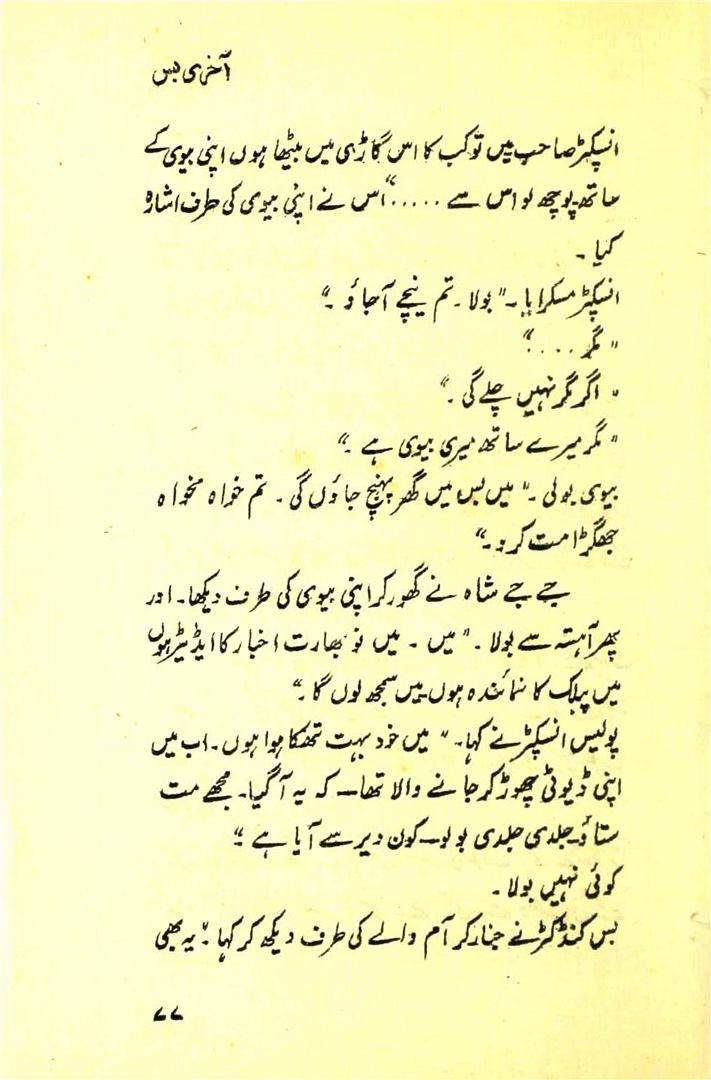 آخری بس
انسپکٹر صاحب میں تو کب کا اس گاڑی میں بیٹھا ہوں اپنی بیوی کے
ساتھ پوچھ لو اس سے .....“ اس نے اپنی بیوی کی طرف اشارہ
کیا ۔
انسپکٹر مسکرایا ۔ ” بولا ۔ تم نیچے آجاؤ ۔“
” مگر ....“
” اگر مگر نہیں چلے گی ۔“
” مگر میرے ساتھ میری بیوی ہے ۔“
بیوی بولی ۔ ” میں بس میں گھر پہنچ جاؤں گی ۔ تم خواہ مخواہ
جھگڑا مت کرو ۔“
جے جے شاہ نے گھور کر اپنی بیوی کی طرف دیکھا ۔ اور
پھر آہستہ سے بولا ۔ ” میں ۔ میں نو بھارت اخبار کا ایڈیٹر ہوں
میں پبلک کا نمائندہ ہوں میں سمجھ لوں گا ۔“
پولیس انسپکٹر نے کہا ۔ ” میں خود بہت تھکا ہوا ہوں ۔ اب میں
اپنی ڈیوٹی چھوڑ کر جانے والا تھا ــ کہ یہ آگیا ۔ مجھے مت
ستاؤ ــ جلدی جلدی بولو ــ کون دیر سے آیا ہے ؟“
کوئی نہیں بولا ۔
بس کنڈکٹر نے کر آم والے کی طرف دیکھ کر کہا ۔ ” یہ بھی
۷۷